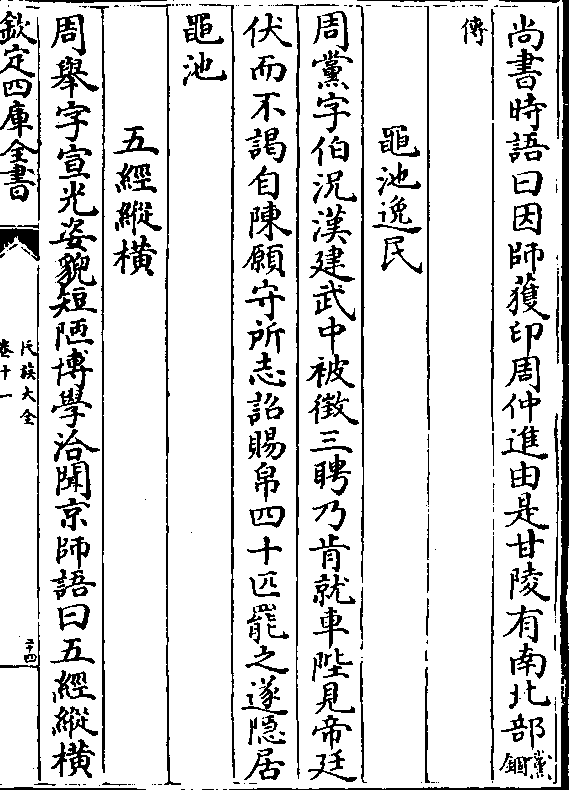 尚書時語曰因師獲印周仲進由是甘陵有南北部黨錮
傳
黽池逸民
周黨字伯況漢建武中被徵三聘乃肯就車陛見帝廷
伏而不謁自陳願守所志詔賜帛四十匹罷之遂隱居
黽池
五經縱橫
周舉字宣光姿貌短陋博學洽聞京師語曰五經縱橫
欽定四庫全書
氏族大全
卷十一
二十四